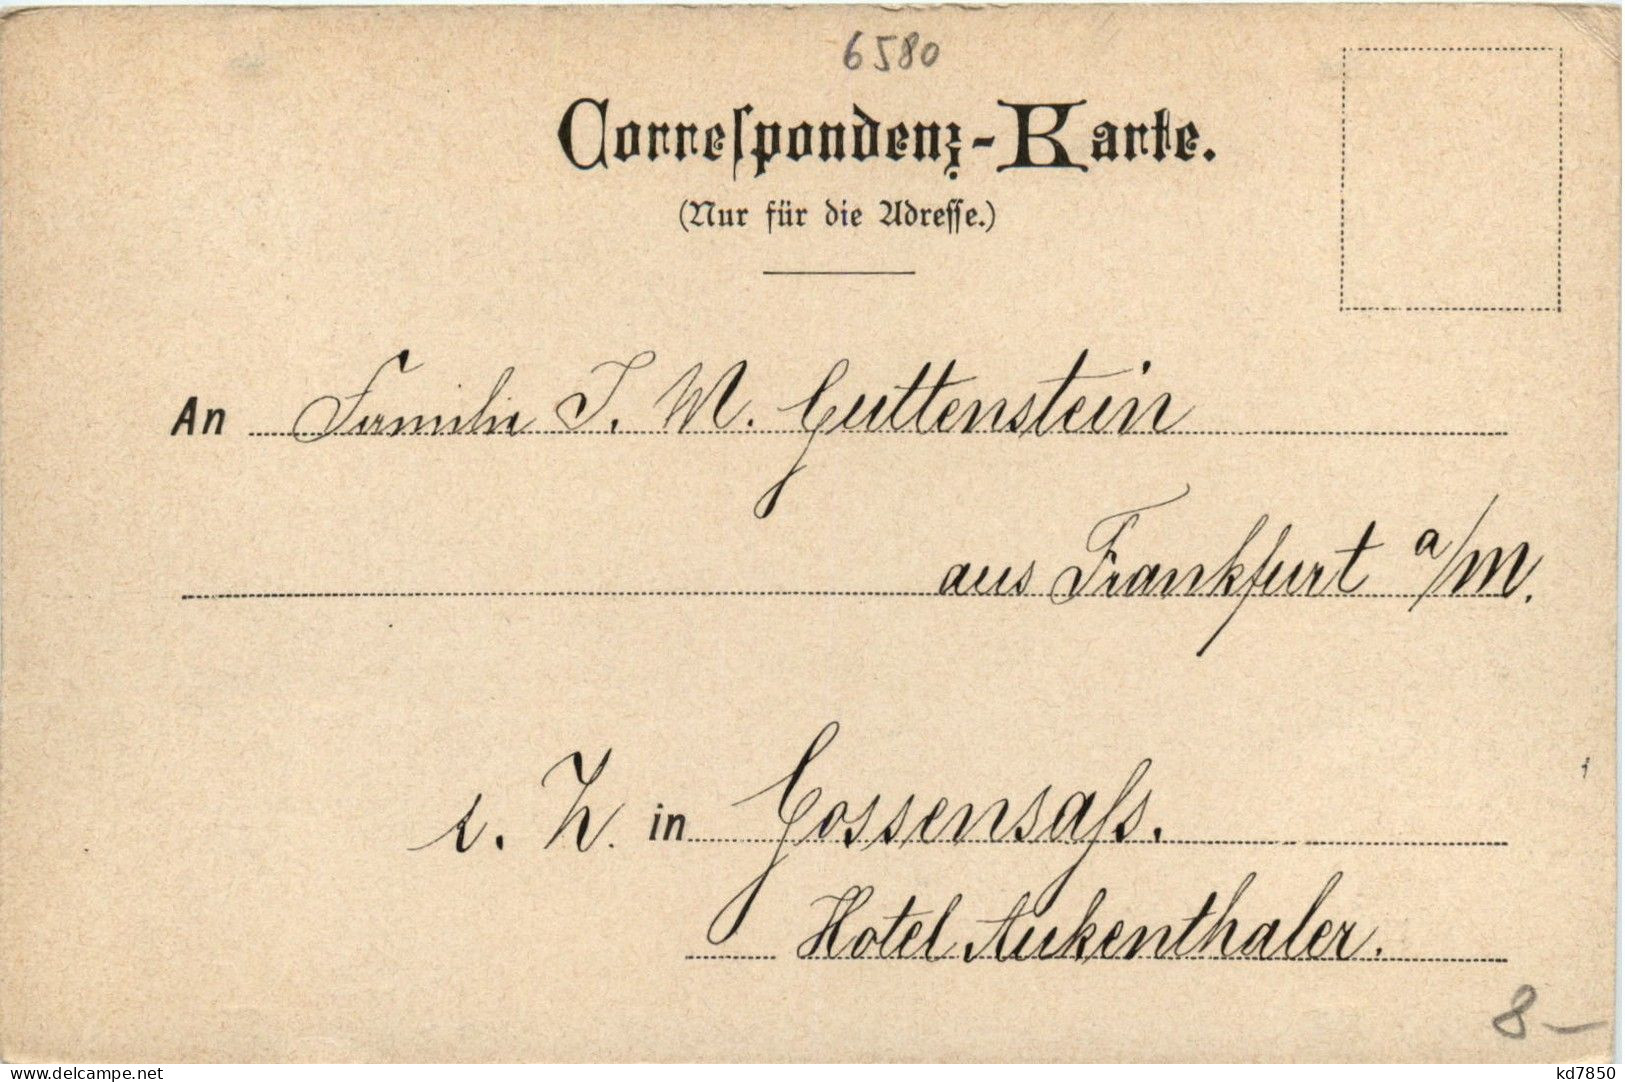 6580
Correspondenz-Karte.
(Nur für die Adresse.)
An Familie J. M. Guttenstein
aus Frankfurt a/M.
z. Z. in Gossensaß.
Hotel Aukenthaler.
8-
www.delcampe.net
kd7850